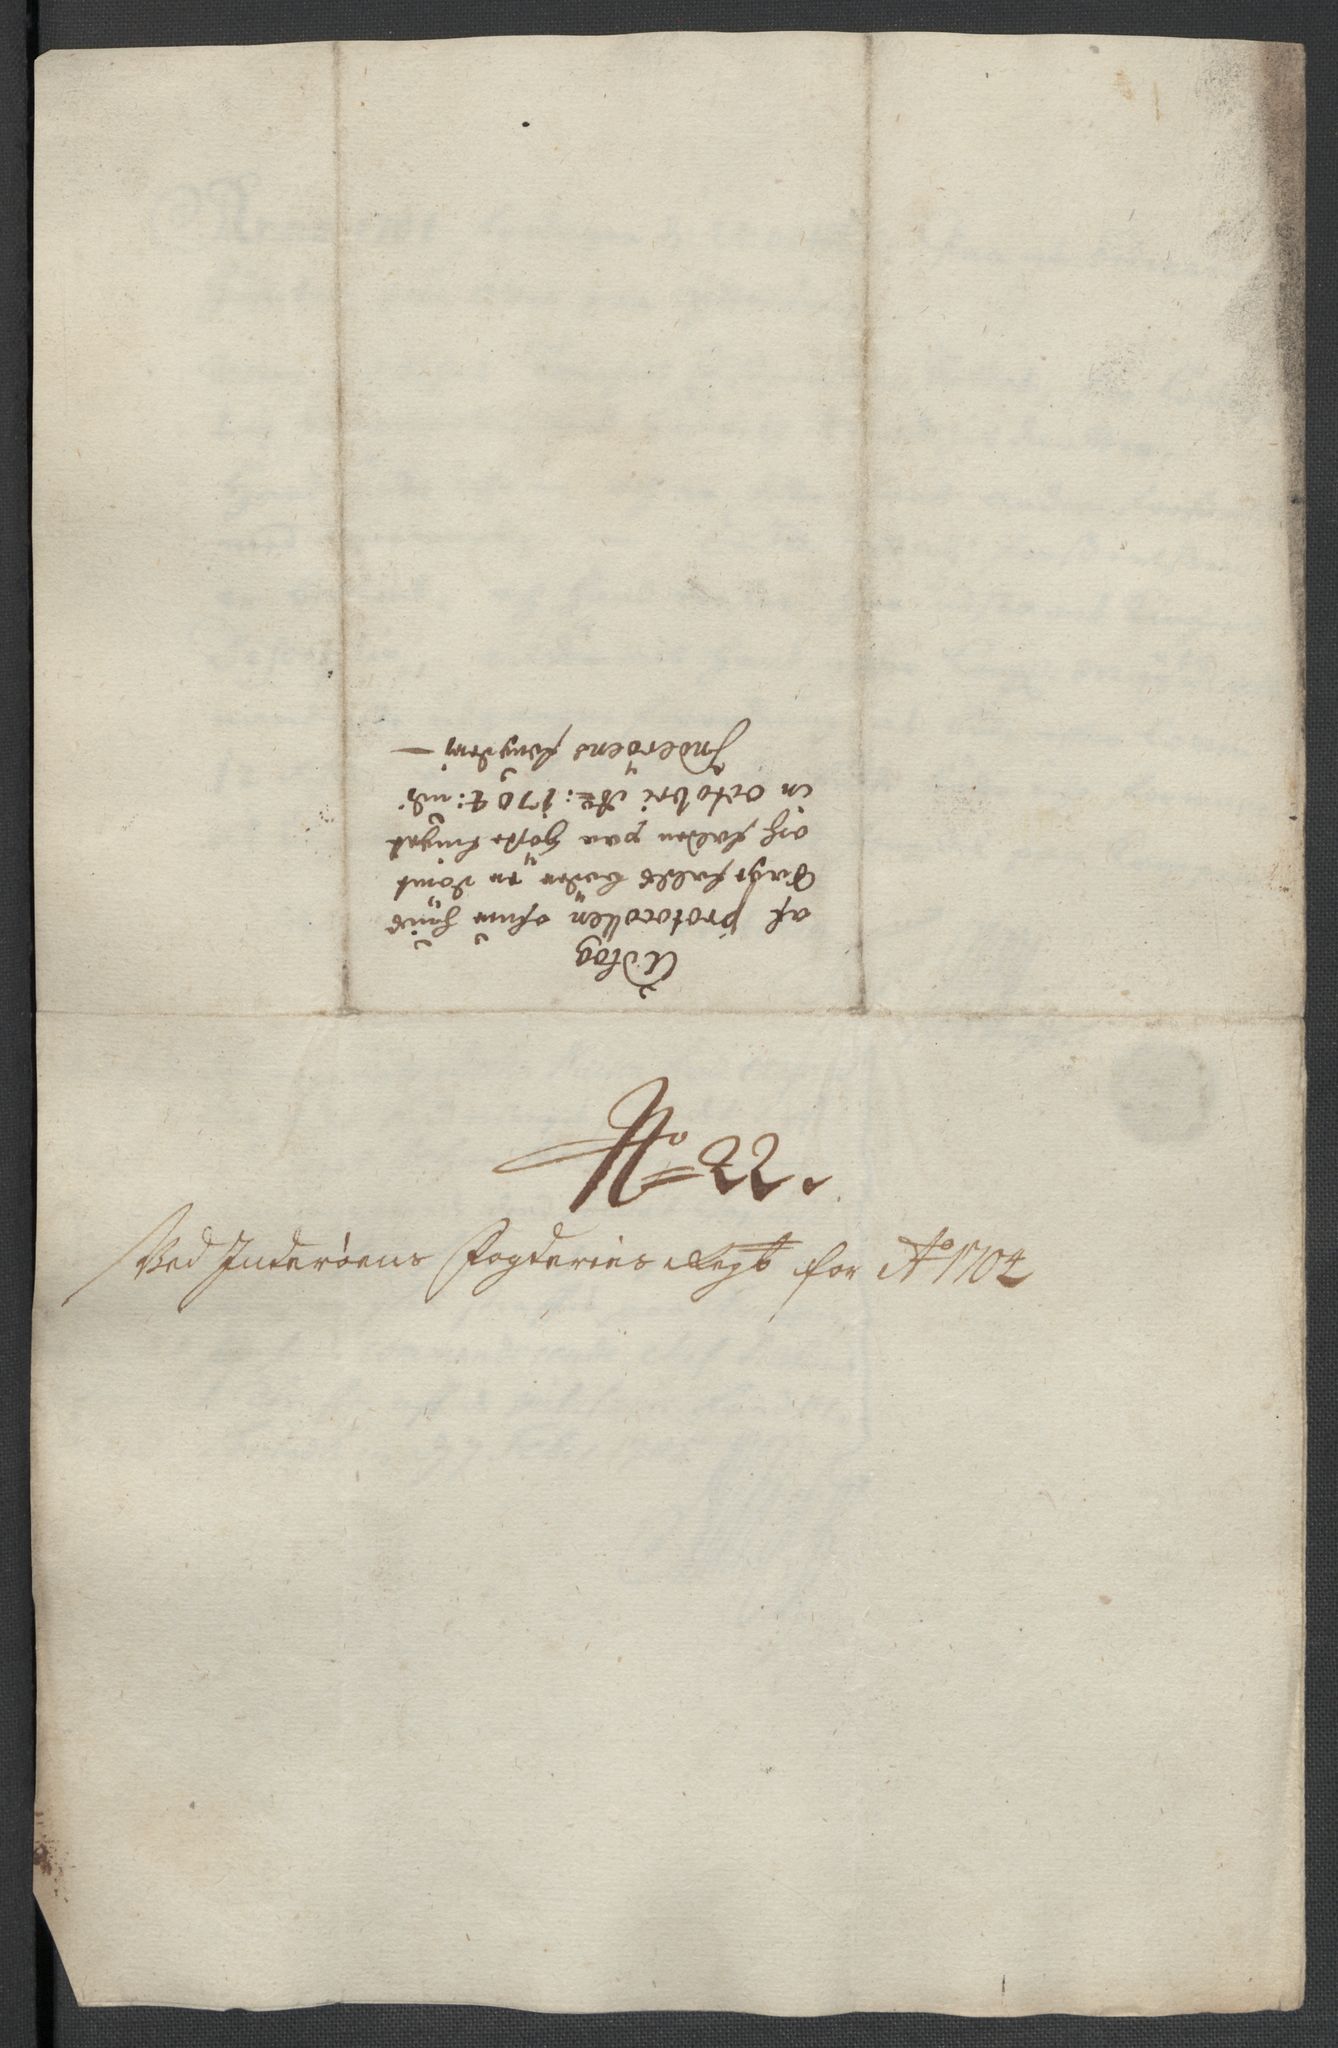 Udtog
af protocollen ofuer huis
Sage falds bøder en domt
och falden paa høste tinget
in octobri Ao: 1704: udj
Inderøens fougderj —
No 22.
Ved Inderøens Fogderies Regb for Ao 1704